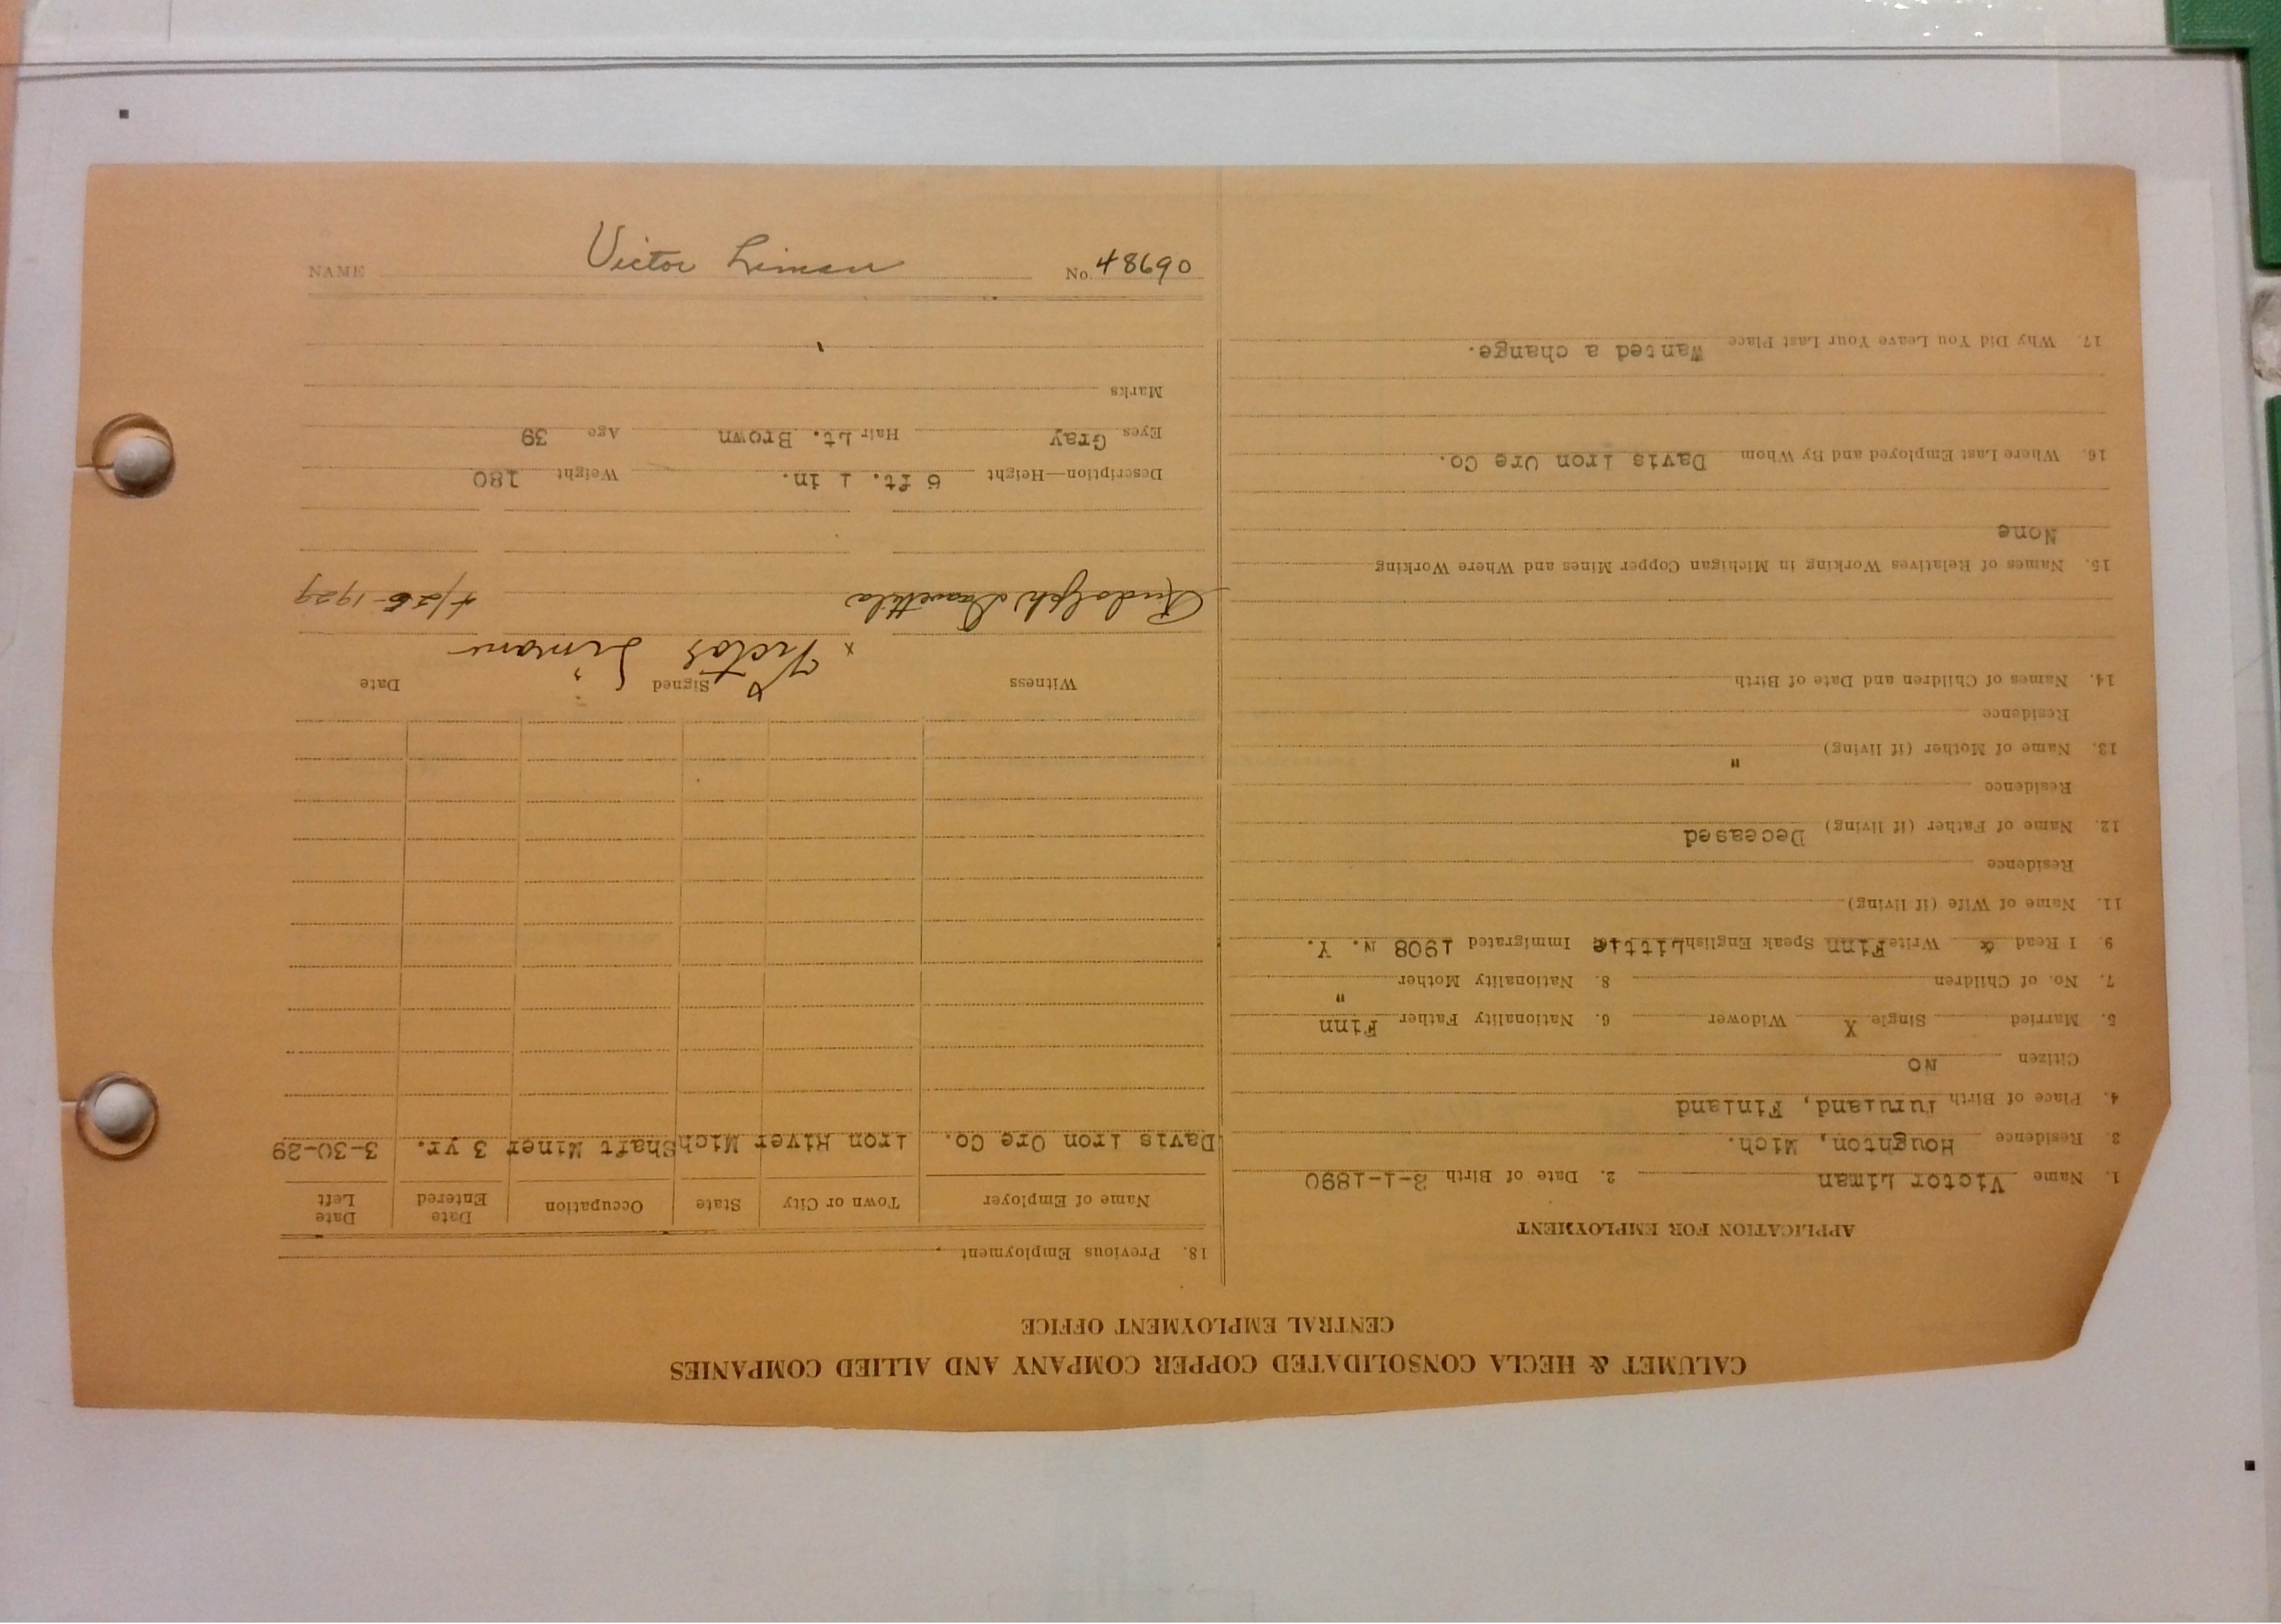 CALUMET & HECLA CONSOLIDATED COPPER COMPANY AND ALLIED COMPANIES
CENTRAL EMPLOYMENT OFFICE
APPLICATION FOR EMPLOYMENT
1. Name Victor Liman 2. Date of Birth 3-1-1890
3. Residence Houghton, Mich.
4. Place of Birth Turuland, Finland
Citizen No
5. Married Single X Widower 6. Nationality Father Finn
7. No. of Children 8. Nationality Mother "
9. I Read & Write Finn Speak English Little Immigrated 1908 N. Y.
11. Name of Wife (if living)
Residence
12. Name of Father (if living) Deceased
Residence
13. Name of Mother (if living) "
Residence
14. Names of Children and Date of Birth
15. Names of Relatives Working in Michigan Copper Mines and Where Working
None
16. Where Last Employed and By Whom Davis Iron Ore Co.
17. Why Did You Leave Your Last Place Wanted a change.
18. Previous Employment
Name of Employer Town or City State Occupation Date Entered Date Left
Davis Iron Ore Co. Iron River Mich Shaft Miner 3 yr. 3-30-29
Witness Signed Date
Rudolph x Victor Liman 4/26-1929
Description—Height 6 ft. 1 in. Weight 180
Eyes Gray Hair Lt. Brown Age 39
Marks
NAME Victor Liman No. 48690